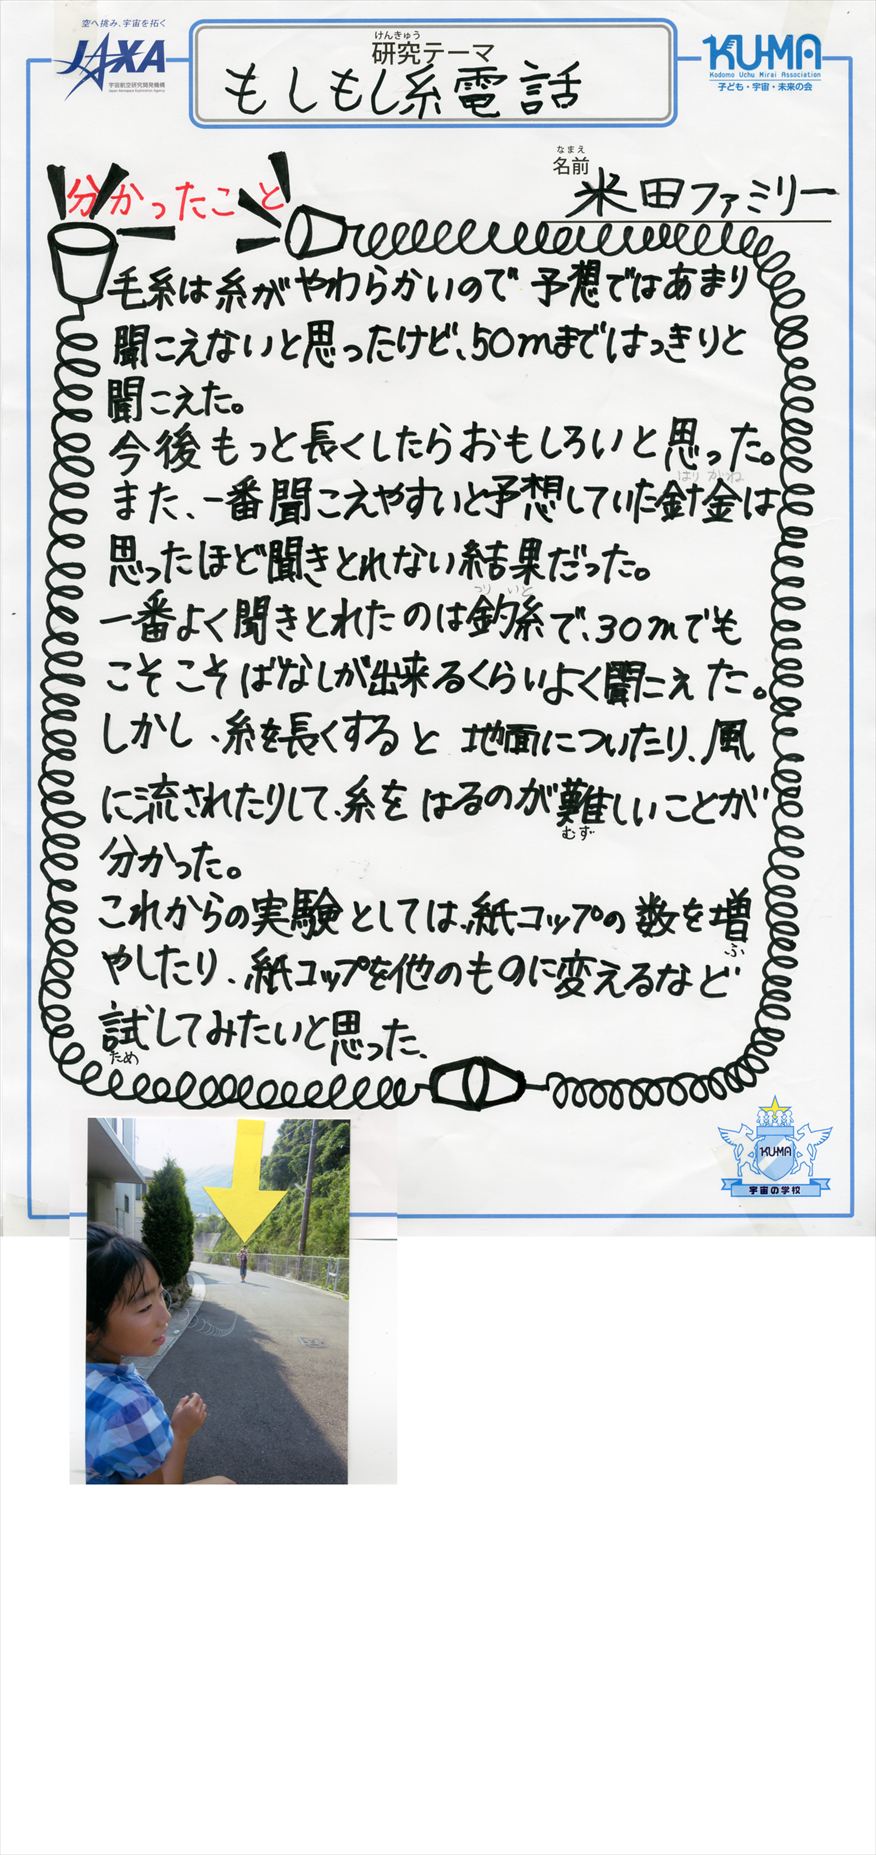 空へ挑み、宇宙を拓く
JAXA
宇宙航空研究開発機構
Japan Aerospace Exploration Agency
けんきゅう
研究テーマ
もしもし糸電話
KU-MA
Kodomo Uchu Mirai Association
子ども・宇宙・未来の会
なまえ
名前
米田ファミリー
分かったこと
毛糸は糸がやわらかいので予想ではあまり
聞こえないと思ったけど、50mまではっきりと
聞こえた。
今後もっと長くしたらおもしろいと思った。
はりがね
また、一番聞こえやすいと予想していた針金は
思ったほど聞きとれない結果だった。
つりいと
一番よく聞きとれたのは釣糸で、30mでも
こそこそばなしが出来るくらいよく聞こえた。
しかし、糸を長くすると地面についたり、風
に流されたりして、糸をはるのが難しいことが
むず
分かった。
これからの実験としては、紙コップの数を増
ふ
やしたり、紙コップを他のものに変えるなど
試してみたいと思った、
ため
KU-MA
宇宙の学校